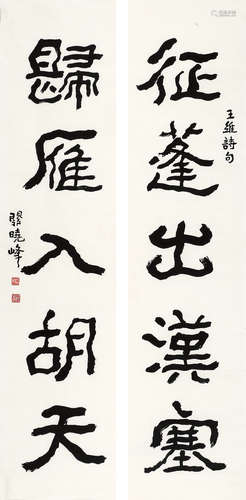 征蓬出漢塞
王維詩句
歸雁入胡天
關曉峰